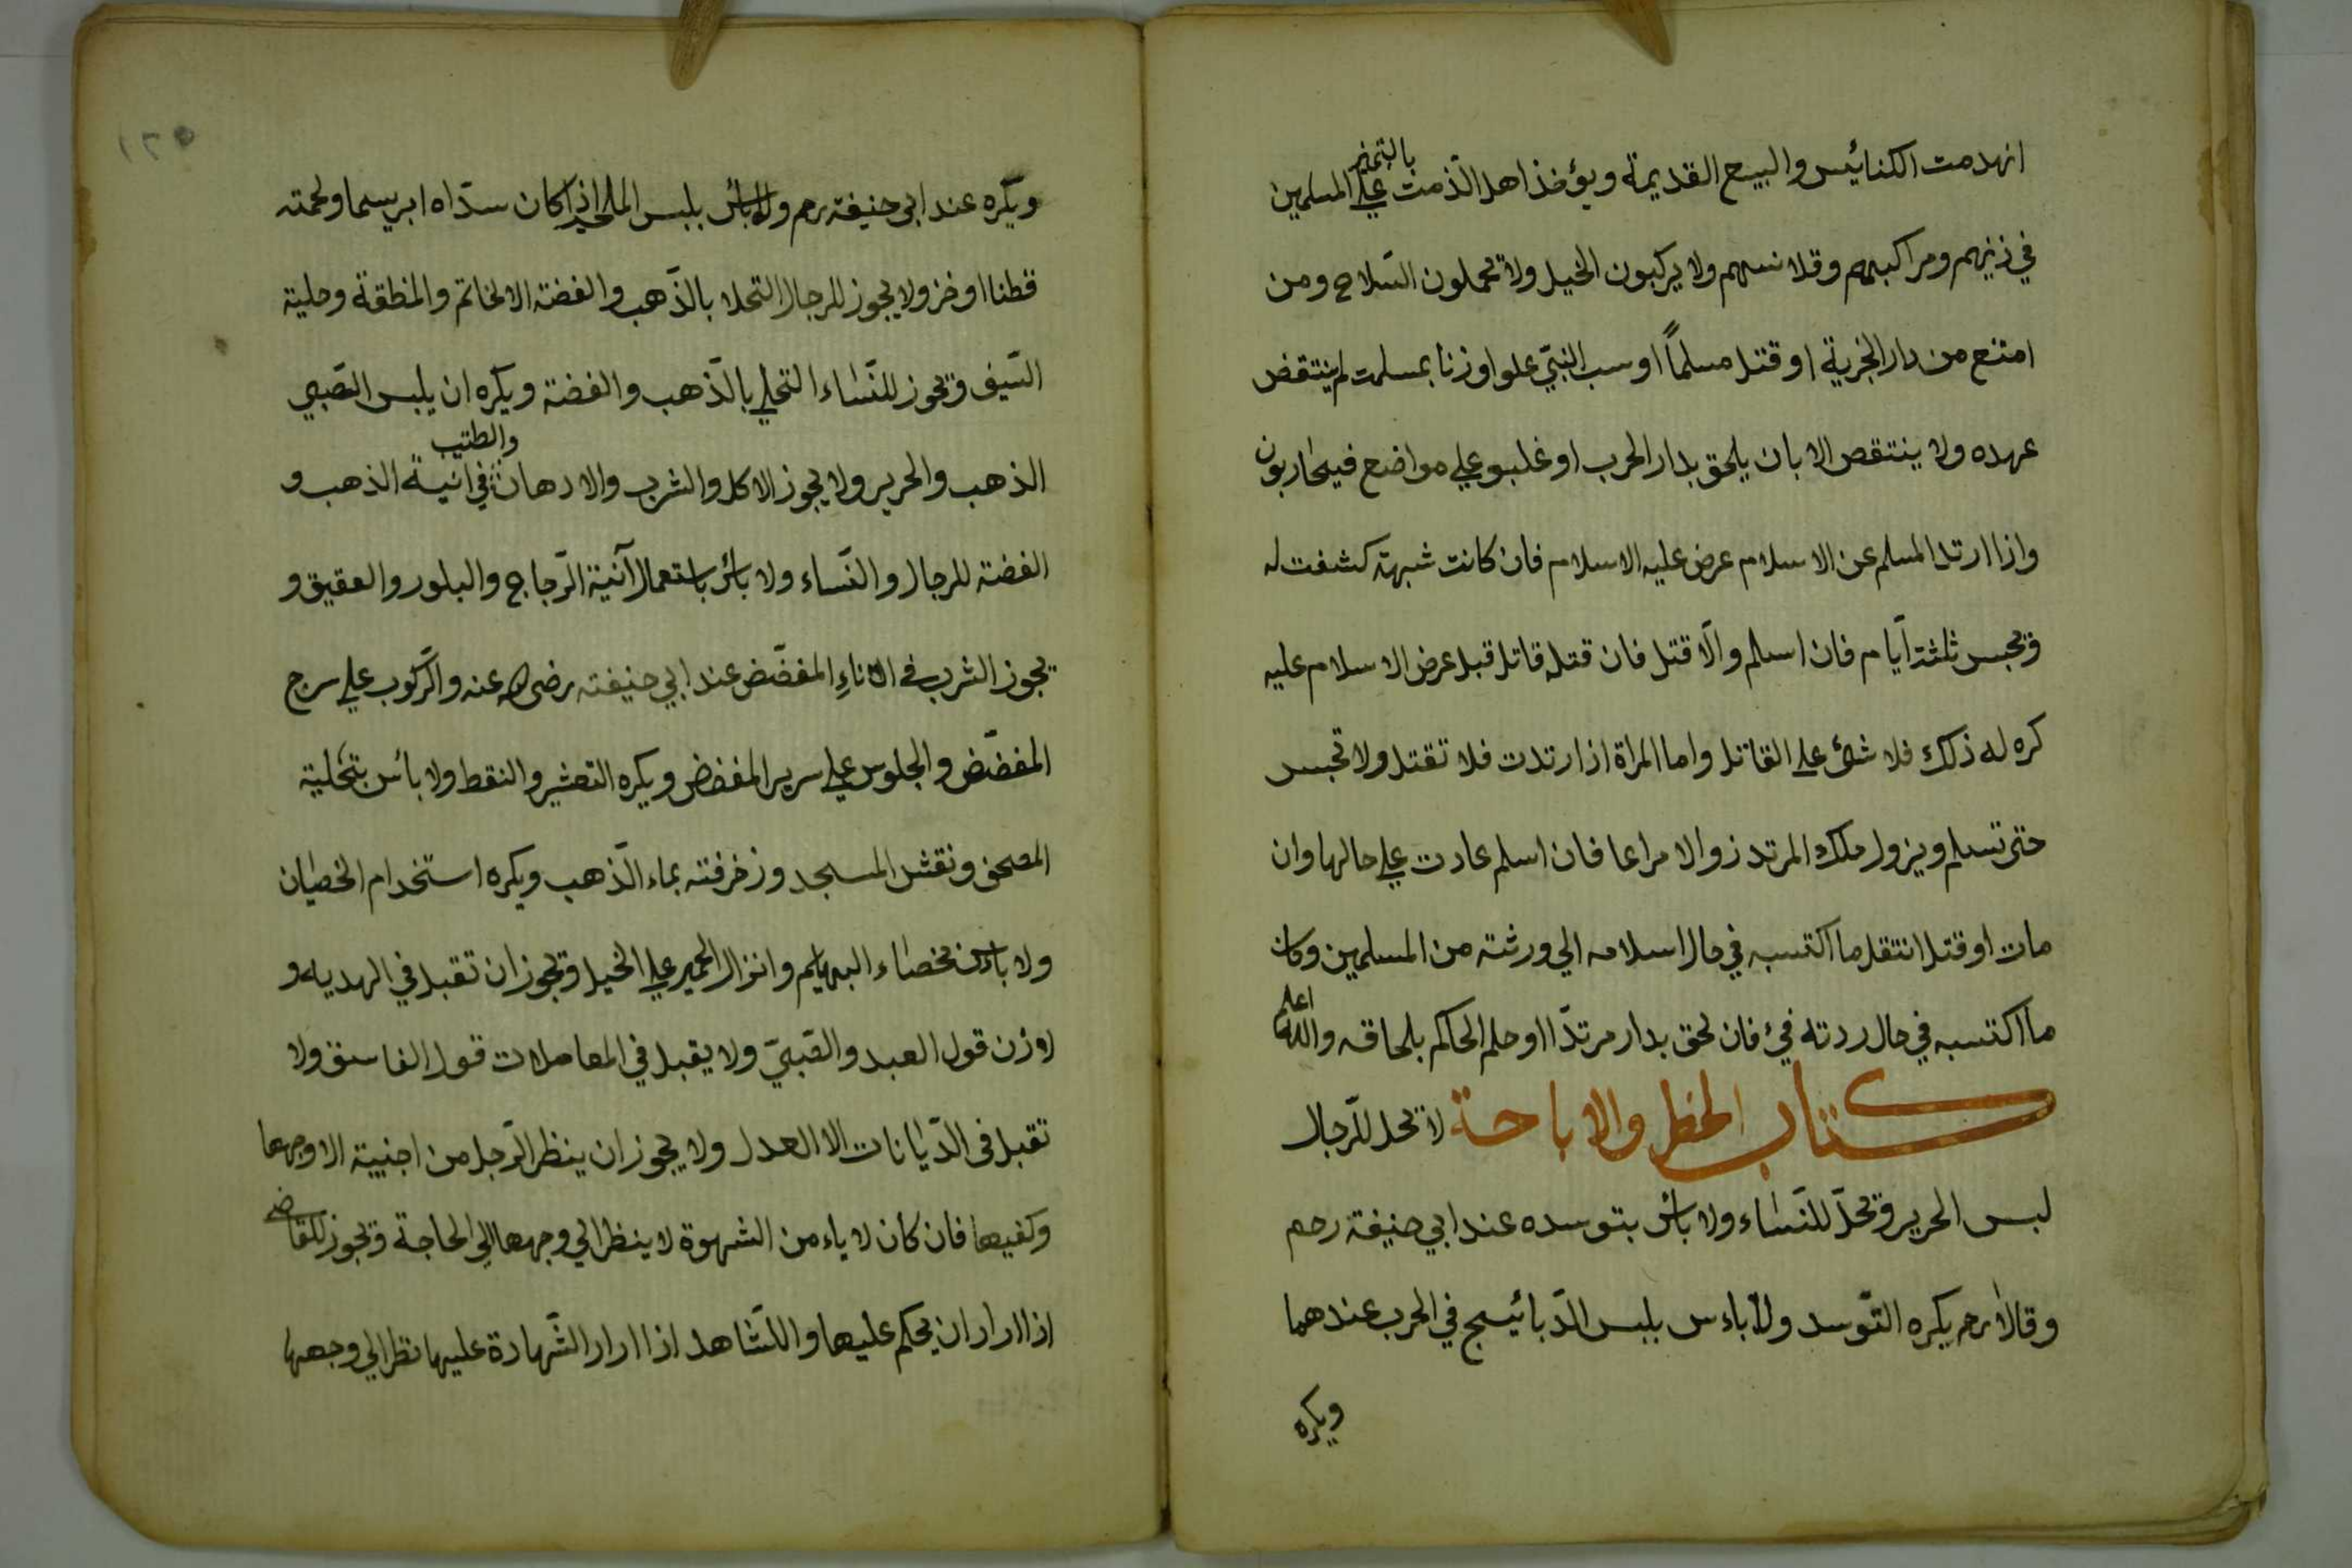 انهدمت الكنائيس والبيع القديمة ويؤخذ اهل الذّمت بالتميز علي المسلمين
في زيّهم ومراكبهم وقلانسهم ولا يركبون الخيل ولا يحملون السّلاح ومن
امتنع من دار الجزية او قتل مسلماً او سب النبيّ علو او زنا بمسلمت لم ينتقض
عهده ولا ينتقص الا بان يلحق بدار الحرب او غلبو علي مواضع فيحاربون
واذا ارتد المسلم عن الاسلام عرض عليه الاسلام فان كانت شبهة كشفت له
ويحبس ثلثة ايّام فان اسلم والّا قتل فان قتله قاتل قبل عرض الاسلام عليه
كره له ذلك فلا شئ علي القاتل واما المراة اذا ارتدت فلا تقتل ولا تحبس
حتى تسلم ويزول ملك المرتد زوالا مراعا فان اسلم عادت علي حالها وان
مات او قتل انتقل ما اكتسبه في حال اسلامه الي ورثته من المسلمين وكان
ما اكتسبه في حال ردته فيئ فان لحق بدار مرتدّا او حلم الحاكم بلحاقه والله اعلم
كتاب الحظر والاباحة لا يحل للرّجال
لبس الحرير ويحلّ للنّساء ولا بأس بتوسده عند ابي حنيفة رحم
وقالا رحم يكره التّوسد ولا باءس بلبس الدّبائيج في الحرب عندهما
ويكره
١٢٥
ويكره عند ابي حنيفة رحم ولا بأس بلبس الملحم اذا كان سدّاه ابريسما ولحمته
قطنا او خز ولا يجوز للرجال التحلا بالذّهب والفضة الا الخاتم والمنطقة وحلية
السّيف ويجوز للنّساء التحلي بالذّهب والفضة ويكره ان يلبس الصّبي
الذهب والحرير ولا يجوز الاكل والشرب والادهان والطيب في انية الذهب و
الفضة للرجال والنّساء ولا بأس باستعمال آنية الزّجاج والبلور والعقيق و
يجوز الشرب في الاناءِ المفضّض عند ابي حنيفته رضى الله عنه والرّكوب علي سرج
المفضّض والجلوس علي سرير المفضض ويكره التعشير والنقط ولا بأس بتحلية
المصحف ونقش المسجد وزخرفته بماء الذّهب ويكره استخدام الخصيان
ولا بأس بخصاء البهايم وانزال الحمير علي الخيل ويجوز ان تقبل في الهديه و
الاذن قول العبد والصّبيّ ولا يقبل في المعاملات قول الفاسق ولا
تقبل في الدّيانات الا العدل ولا يجوز ان ينظر الرّجل من اجنبية الا وجهها
وكفيها فان كان لا ياءمن الشهوة لا ينظر الي وجهها الي الحاجة ويجوز للقاضي
اذا اراد ان يحكم عليها واللشّاهد اذا اراد الشّهادة عليها نظر الي وجهها